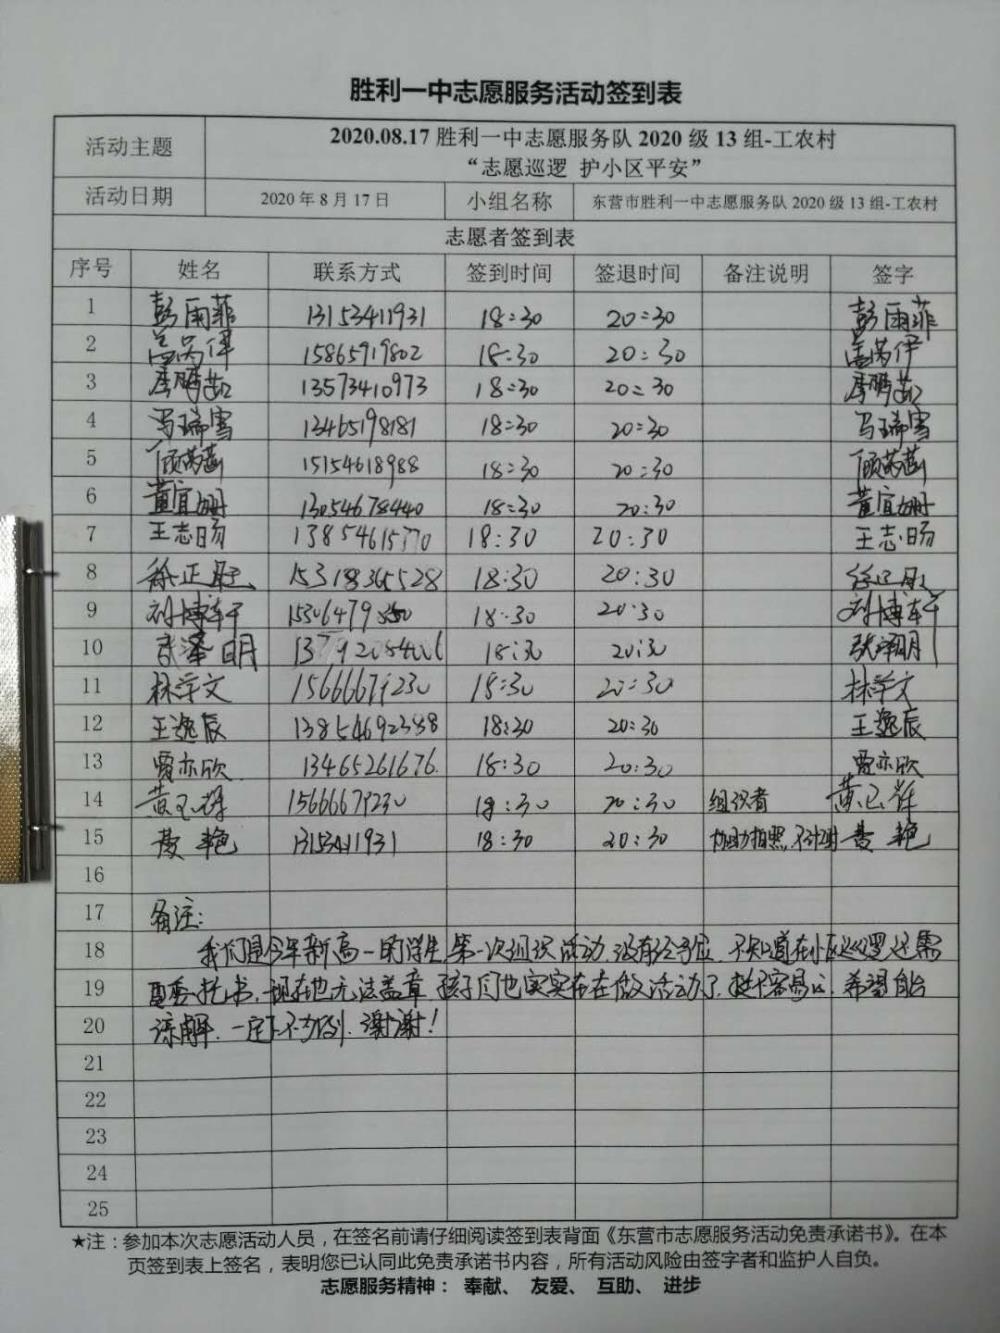 胜利一中志愿服务活动签到表
活动主题 2020.08.17 胜利一中志愿服务队 2020 级 13 组-工农村
“志愿巡逻 护小区平安”
活动日期 2020 年 8 月 17 日 小组名称 东营市胜利一中志愿服务队 2020 级 13 组-工农村
志愿者签到表
序号 姓名 联系方式 签到时间 签退时间 备注说明 签字
1 彭雨菲 13153411931 18:30 20:30 彭雨菲
2 15865919802 18:30 20:30
3 13573410973 18:30 20:30
4 冯瑞雪 13465198181 18:30 20:30 冯瑞雪
5 15154618988 18:30 20:30
6 董宜姗 13054678440 18:30 20:30 董宜姗
7 王志旸 13854615770 18:30 20:30 王志旸
8 徐正 15318365528 18:30 20:30 徐正
9 刘博轩 18:30 20:30 刘博轩
10 18:30 20:30
11 林学文 15666679230 18:30 20:30 林学文
12 王逸辰 18:30 20:30 王逸辰
13 贾亦欣 13465261676 18:30 20:30 贾亦欣
14 15666679230 18:30 20:30 组织者
15 黄艳 13153411931 18:30 20:30 协助拍照,不计时 黄艳
16
17 备注:
18 我们是今年新高一的学生,第一次组织活动,没有经验,不知道在小区巡逻还需
19 要委托书,现在也无法盖章,孩子们也实实在在做活动了,挺不容易的,希望
20 谅解,一定下不为例,谢谢!
21
22
23
24
25
★注：参加本次志愿活动人员，在签名前请仔细阅读签到表背面《东营市志愿服务活动免责承诺书》。在本
页签到表上签名，表明您已认同此免责承诺书内容，所有活动风险由签字者和监护人自负。
志愿服务精神： 奉献、 友爱、 互助、 进步